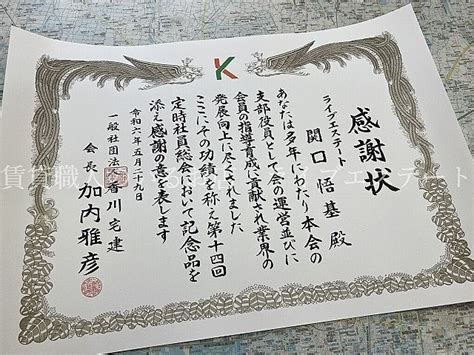 K
感謝状
ライブエステート
関口悟基 殿
あなたは多年にわたり本会の
支部役員として会の運営並びに
会員の指導育成に貢献され業界の
発展向上に尽くされました
ここにその功績を称え第十四回
定時社員総会において記念品を
添え感謝の意を表します
令和六年五月二十九日
一般社団法人香川宅建
会長 加内雅彦
賃貸職人